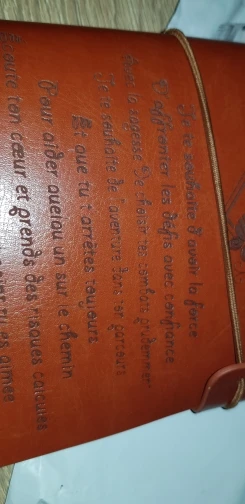 Je te souhaite d'avoir la force
D'affronter les défis avec confiance
la sagesse de choisir tes combats prudemment
Je te souhaite de l'aventure dans ton parcours
Et que tu t'arrêtes toujours
Pour aider quelqu'un sur le chemin
Écoute ton cœur et prends des risques calculés
tu es aimée